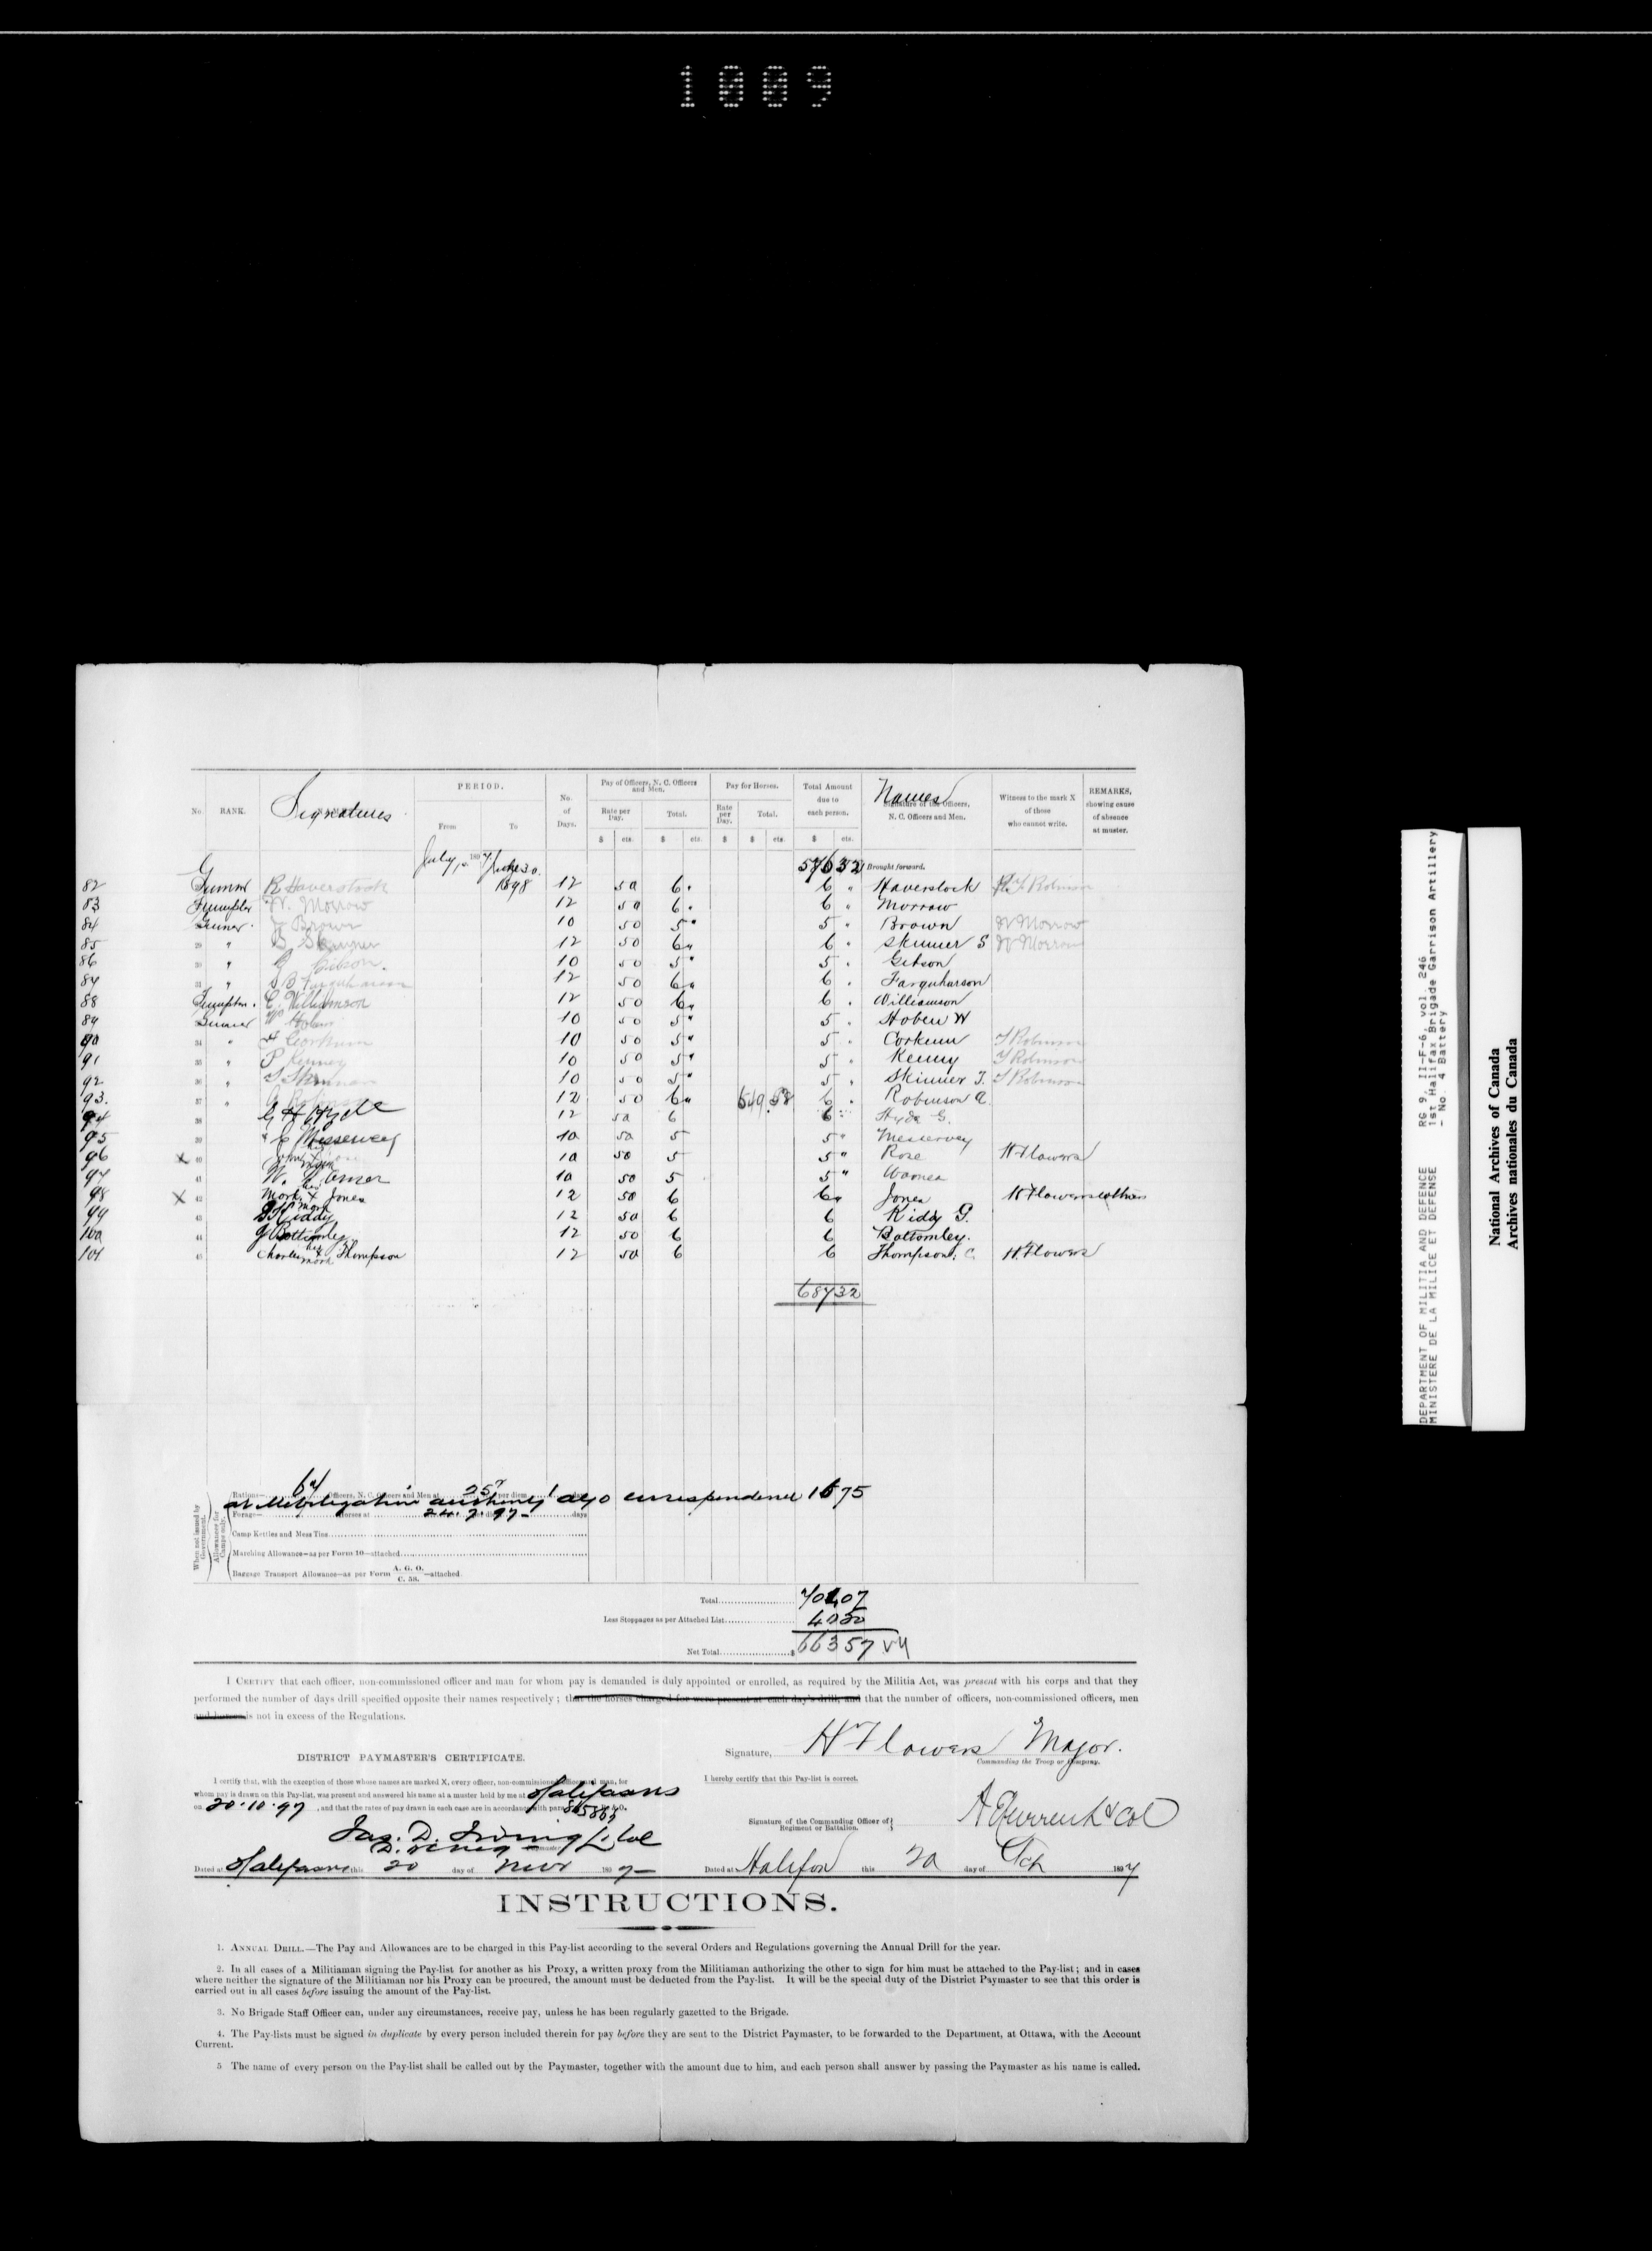 1009
PERIOD. Pay of Officers, N. C. Officers and Men. Pay for Horses. Total Amount due to each person. Names REMARKS, showing cause of absence at muster.
No RANK. Signatures From To No. of Days. Rate per Day. Total. Rate per Day. Total. Signature of the Officers, N. C. Officers and Men. Witness to the mark X of those who cannot write.
$ cts. $ cts. $ $ cts. $ cts.
July 1, 1897 June 30. 576 32 Brought forward.
82 Gunner R Haverstock 1898 12 50 6 . 6 " Haverstock Robinson
83 Trumpeter W. Morrow 12 50 6 . 6 " Morrow
84 Gunner J Brown 10 50 5 " 5 " Brown W Morrow
85 29 " S Skinner 12 50 6 " 6 " Skinner S W Morrow
86 30 " G Gibson. 10 50 5 " 5 " Gibson
87 31 " B Farquharson 12 50 6 " 6 " Farquharson
88 Trumpter. C. Williamson 12 50 6 " 6 " Williamson
89 Gunner W Hoben 10 50 5 " 5 " Hoben W
90 34 " Corkum 10 50 5 " 5 " Corkum T Robinson
91 35 " P Kenney 10 50 5 " 5 " Kenny T Robinson
92 36 " T Skinner 10 50 5 " 5 " Skinner T. T Robinson
93. 37 " A Robinson 12 50 6 " 649.58 6 " Robinson A.
94 38 G H Hyde 12 50 6 6 Hyde G.
95 39 C Messervey 10 50 5 5 " Messervey
96 X 40 10 50 5 5 " Rose H Flowers
97 41 W. Warner 10 50 5 5 " Warner
98 X 42 Mark his X mark Jones 12 50 6 6 " Jones H Flowers witness
99 43 G Kiddy 12 50 6 6 Kiddy G.
100 44 J Bottomley 12 50 6 6 Bottomley.
101 45 Charles his X mark Thompson 12 50 6 6 Thompson. C. H. Flowers
687 32
When not issued by Government.
Allowances for Camps only.
Rations— 67 Officers, N. C. Officers and Men at 25 per diem 1 days
at Mobilization authority ago correspondence 16 75
Forage— Horses at 24.7.97 days
Camp Kettles and Mess Tins
Marching Allowance—as per Form 10—attached
Baggage Transport Allowance—as per Form A. G. O. C. 58. —attached.
Total 704 07
Less Stoppages as per Attached List 40 50
Net Total $ 663 57
I CERTIFY that each officer, non-commissioned officer and man for whom pay is demanded is duly appointed or enrolled, as required by the Militia Act, was present with his corps and that they
performed the number of days drill specified opposite their names respectively ; that the horses charged for were present at each day's drill, and that the number of officers, non-commissioned officers, men
and horses is not in excess of the Regulations.
Signature, H Flowers Major.
Commanding the Troop or Company.
DISTRICT PAYMASTER'S CERTIFICATE.
I certify that, with the exception of those whose names are marked X, every officer, non-commissioned officer and man, for
whom pay is drawn on this Pay-list, was present and answered his name at a muster held by me at Halifax NS
on 20.10.97 , and that the rates of pay drawn in each case are in accordance with para R. & O.
I hereby certify that this Pay-list is correct.
Signature of the Commanding Officer of Regiment or Battalion. A E Curren Lt Col
Jas. D. Irving Lt Col
Dated at Halifax NS this 20 day of Nov 1897
Dated at Halifax this 20 day of Oct 1897
INSTRUCTIONS.
1. ANNUAL DRILL.—The Pay and Allowances are to be charged in this Pay-list according to the several Orders and Regulations governing the Annual Drill for the year.
2. In all cases of a Militiaman signing the Pay-list for another as his Proxy, a written proxy from the Militiaman authorizing the other to sign for him must be attached to the Pay-list ; and in cases
where neither the signature of the Militiaman nor his Proxy can be procured, the amount must be deducted from the Pay-list. It will be the special duty of the District Paymaster to see that this order is
carried out in all cases before issuing the amount of the Pay-list.
3. No Brigade Staff Officer can, under any circumstances, receive pay, unless he has been regularly gazetted to the Brigade.
4. The Pay-lists must be signed in duplicate by every person included therein for pay before they are sent to the District Paymaster, to be forwarded to the Department, at Ottawa, with the Account
Current.
5 The name of every person on the Pay-list shall be called out by the Paymaster, together with the amount due to him, and each person shall answer by passing the Paymaster as his name is called.
DEPARTMENT OF MILITIA AND DEFENCE RG 9, II-F-6, vol. 246
MINISTERE DE LA MILICE ET DEFENSE 1st Halifax Brigade Garrison Artillery
- No. 4 Battery
National Archives of Canada
Archives nationales du Canada